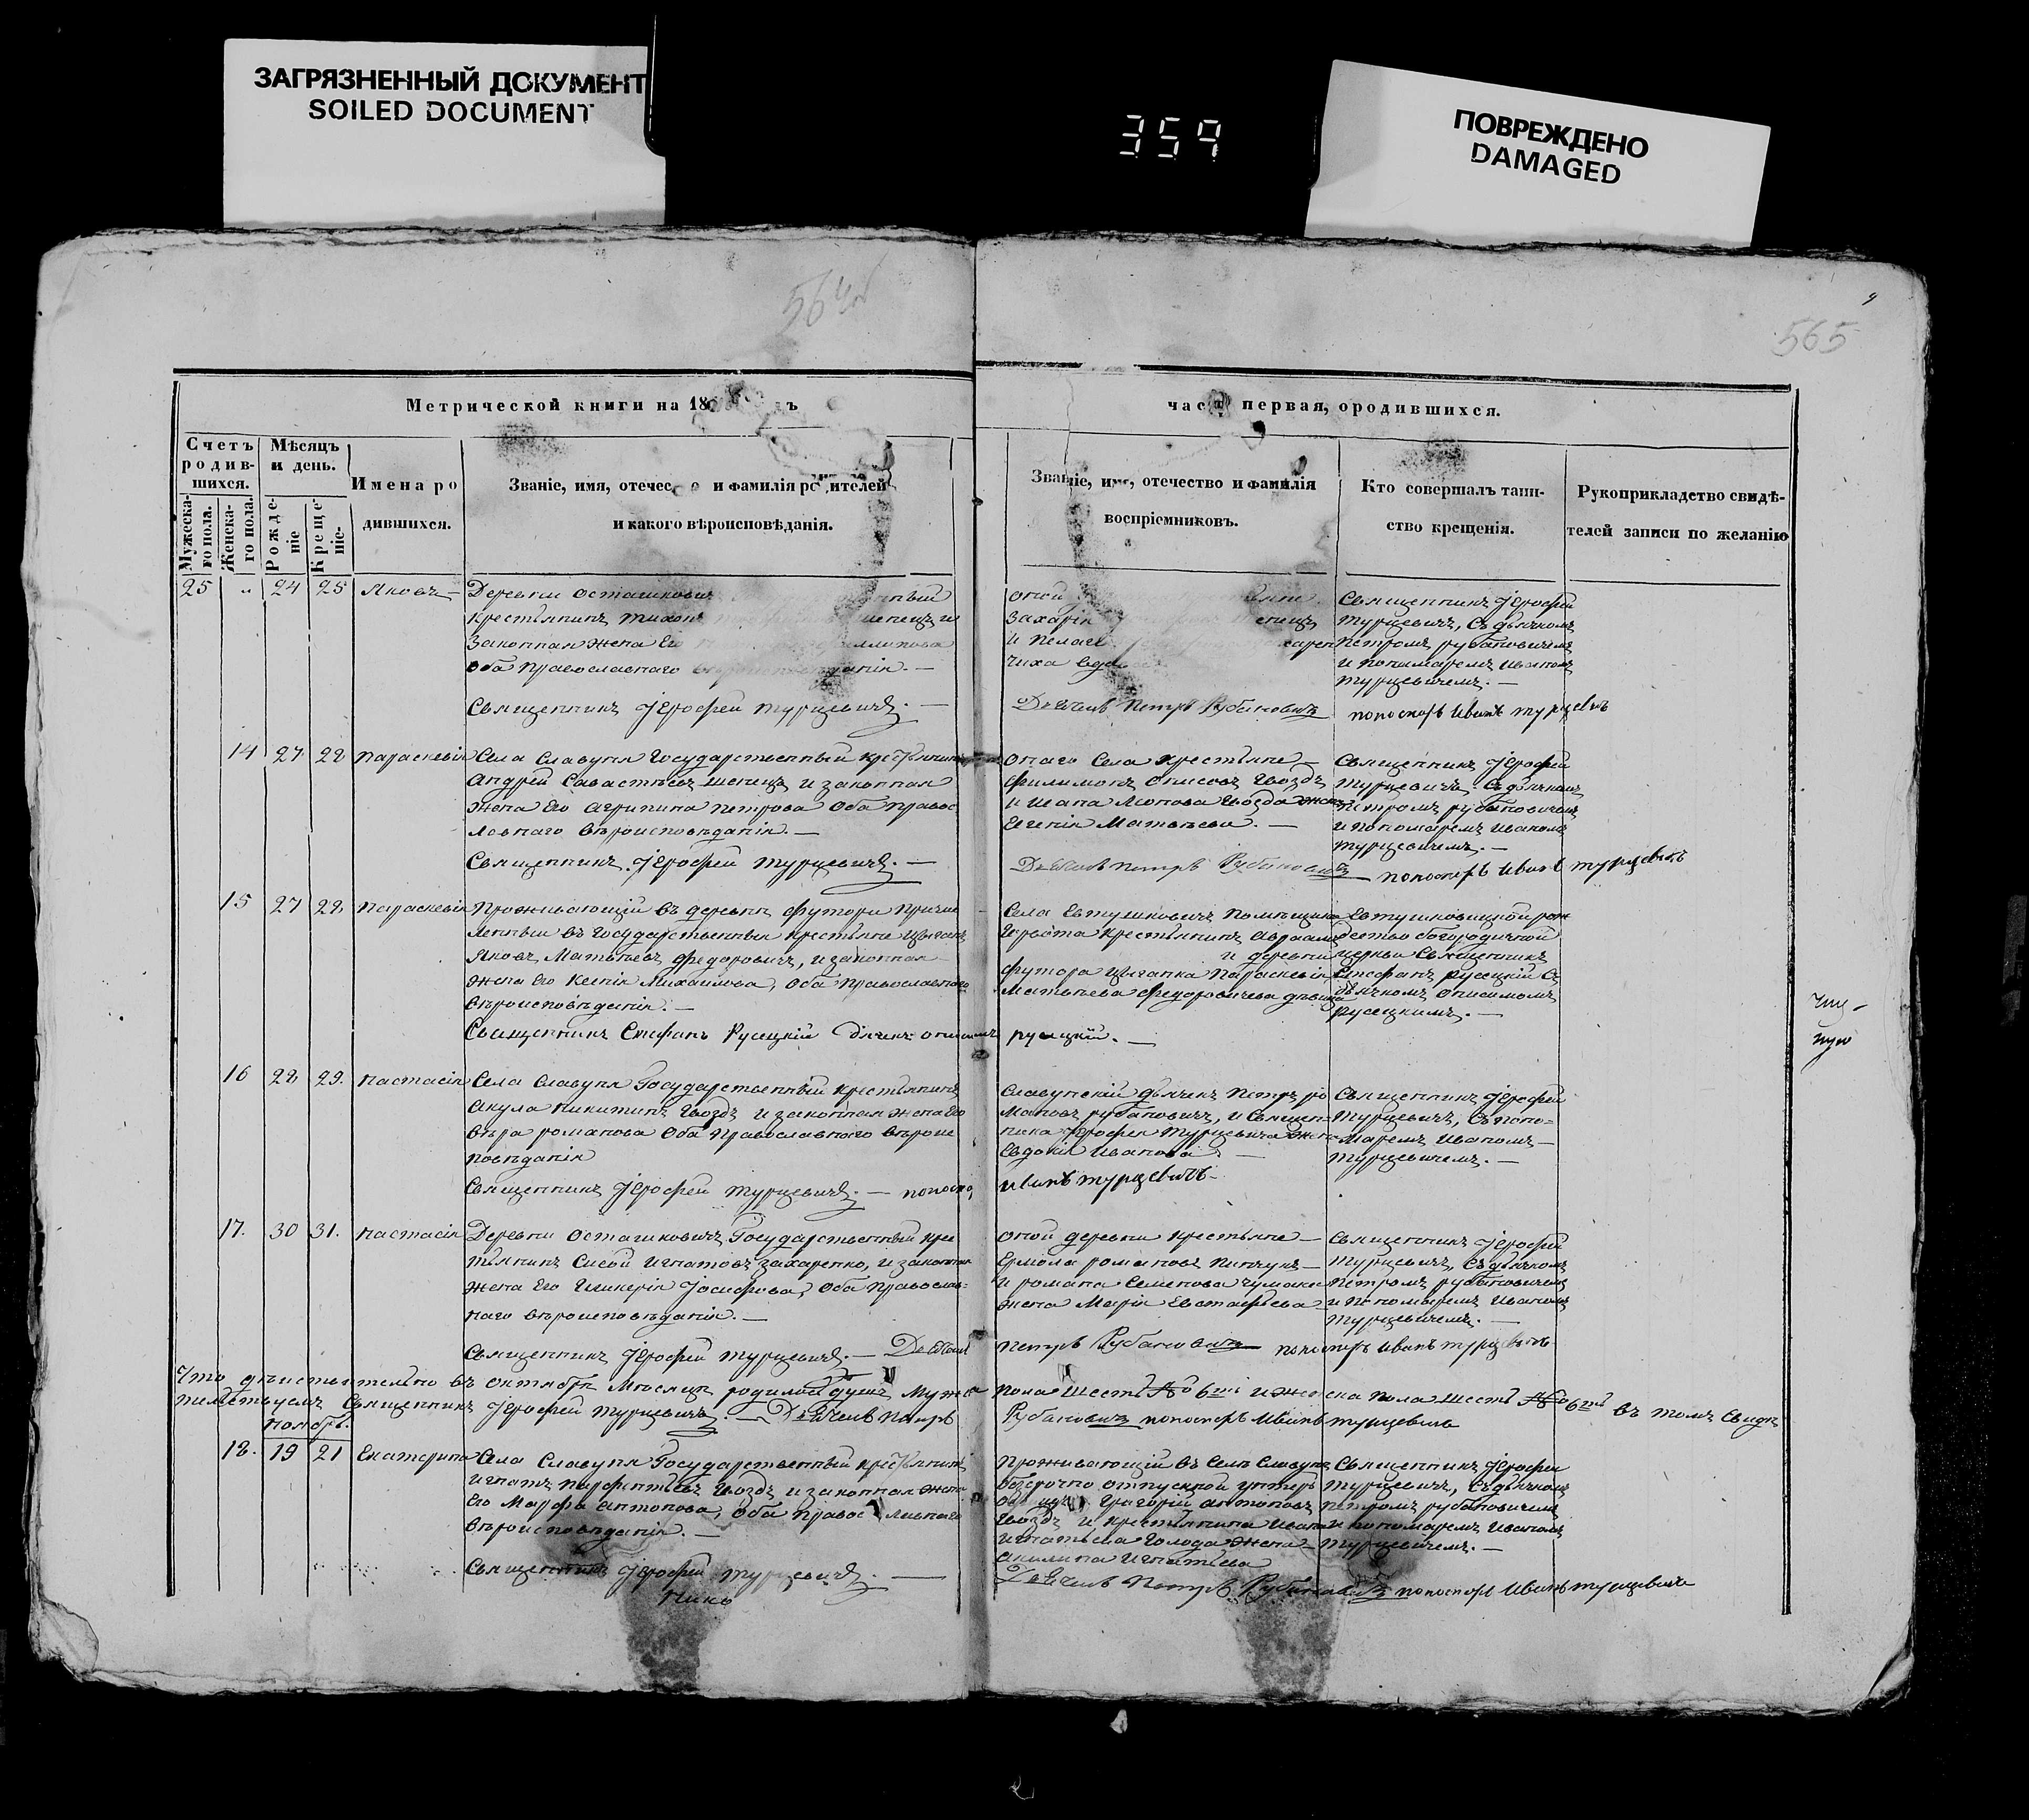 ЗАГРЯЗНЕННЫЙ ДОКУМЕНТ
SOILED DOCUMENT
359
ПОВРЕЖДЕНО
DAMAGED
565
Метрической книги на 18
часть первая, о родившихся.
Счетъ родив-шихся.
Мужеска-го пола.
Женска-го пола.
Мѣсяцъ и день.
Рожде-ніе
Креще-ніе.
Имена ро
дившихся.
Званіе, имя, отечес о и фамилія родителей
и какого вѣроисповѣданія.
Званіе, имя, отечество и фамилія
воспріемниковъ.
Кто совершалъ таин-
ство крещенія.
Рукоприкладство свидѣ-
телей записи по желанію
25 " 24 25 Яковъ
Деревни Осташковичъ
Крестьянинъ Тихонъ
Законная жена Его
Оба Православнаго
Священникъ Іерофей Турцевичъ.
оной
Захарій
и Пелаге
чиха
Дьячекъ Петръ Рубановичъ
Священникъ Іерофей
Турцевичъ, съ дьячкомъ
Петромъ Рубановичемъ
и пономаремъ Иваномъ
Турцевичемъ.
пономарь Иванъ Турцевичъ
14 27 28 Параскевія
Села Славуня Государственный крестьянинъ
Андрей Савастѣевъ Шепецъ и законная
жена Его Агрипина Петрова Оба Правос
лавнаго вѣроисповѣданія.
Священникъ Іерофей Турцевичъ.
онаго Села Крестьяне
Филимонъ Гвоздъ
Евгенія Матвѣева.
Дьячекъ Петръ Рубановичъ
Священникъ Іерофей
Турцевичъ съ дьячкомъ
Петромъ Рубановичемъ
и пономаремъ Иваномъ
Турцевичемъ.
пономарь Иванъ Турцевичъ
15 27 28 Параскевія
Проживающій въ деревнѣ Футори Причи
сленный въ Государственныя крестьяне цыганъ
Яковъ Матвѣевъ Федоровичъ, и законная
жена Его Ксенія Михайлова, Оба Православнаго
вѣроисповѣданія.
Священникъ Стефанъ Русецкій Дьячекъ Онисимъ Русецкій.
Села Евтушковичъ Помѣщика
Крестьянинъ Авраамъ
и деревни
Футора Цыганка Параскевія
Матвѣева Федоровичева дѣвица
Евтушковицкой рож
дество богородичной
церкви Священникъ
Стефанъ Русецкій съ
дьячкомъ Онисимомъ
Русецкимъ.
16 28 29. Настасія
Села Славуня Государственный крестьянинъ
Акула Никитинъ Гвоздъ и законная жена Его
Вѣра Романова Оба Православнаго вѣроис
повѣданія
Священникъ Іерофей Турцевичъ. пономарь Иванъ Турцевичъ.
Славунскій дьячекъ Петръ Ро
мановъ Рубановичъ, и Священ-
ника Іерофея Турцевича жена
Евдокія Иванова
Священникъ Іерофей
Турцевичъ, съ поно-
маремъ Иваномъ
Турцевичемъ.
17. 30 31. Настасія
Деревни Осташковичъ Государственный крес
тьянинъ Сисой Игнатовъ Захаренко, и законная
жена Его Гликерія Іосифова, Оба Православ-
наго вѣроисповѣданія.
Священникъ Іерофей Турцевичъ. Дьячекъ Петръ Рубановичъ пономарь Иванъ Турцевичъ
оной деревни крестьяне
Ермола Романовъ Пинчукъ
и Романа Семенова Чумака
жена Марія Евстафьева
Священникъ Іерофей
Турцевичъ, съ дьячкомъ
Петромъ Рубановичемъ
и пономаремъ Иваномъ
Турцевичемъ.
Что дѣйствительно въ октябрѣ Мѣсяцѣ родилось душъ Мужеска пола Шесть № 6ть и женска пола шесть № 6ть въ томъ Свидѣ
тельствуемъ Священникъ Іерофей Турцевичъ. Дьячекъ Петръ Рубановичъ пономарь Иванъ Турцевичъ
Ноябрь.
18. 19 21 Екатерина
Села Славуня Государственный крестьянинъ
Игнатъ Парфентьевъ Гвоздъ и законная жена
Его Марфа Антонова, Оба Православнаго
вѣроисповѣданія.
Священникъ Іерофей Турцевичъ.
Проживающій въ Селѣ Славунѣ
безсрочно отпускной унтеръ
Григорій Антоновъ
Гвоздъ и крестьянина Ивана
Игнатьева Голода жена
Акилина Игнатьева
Дьячекъ Петръ Рубановичъ пономарь Иванъ Турцевичъ
Священникъ Іерофей
Турцевичъ, съ дьячкомъ
Петромъ Рубановичемъ
и пономаремъ Иваномъ
Турцевичемъ.